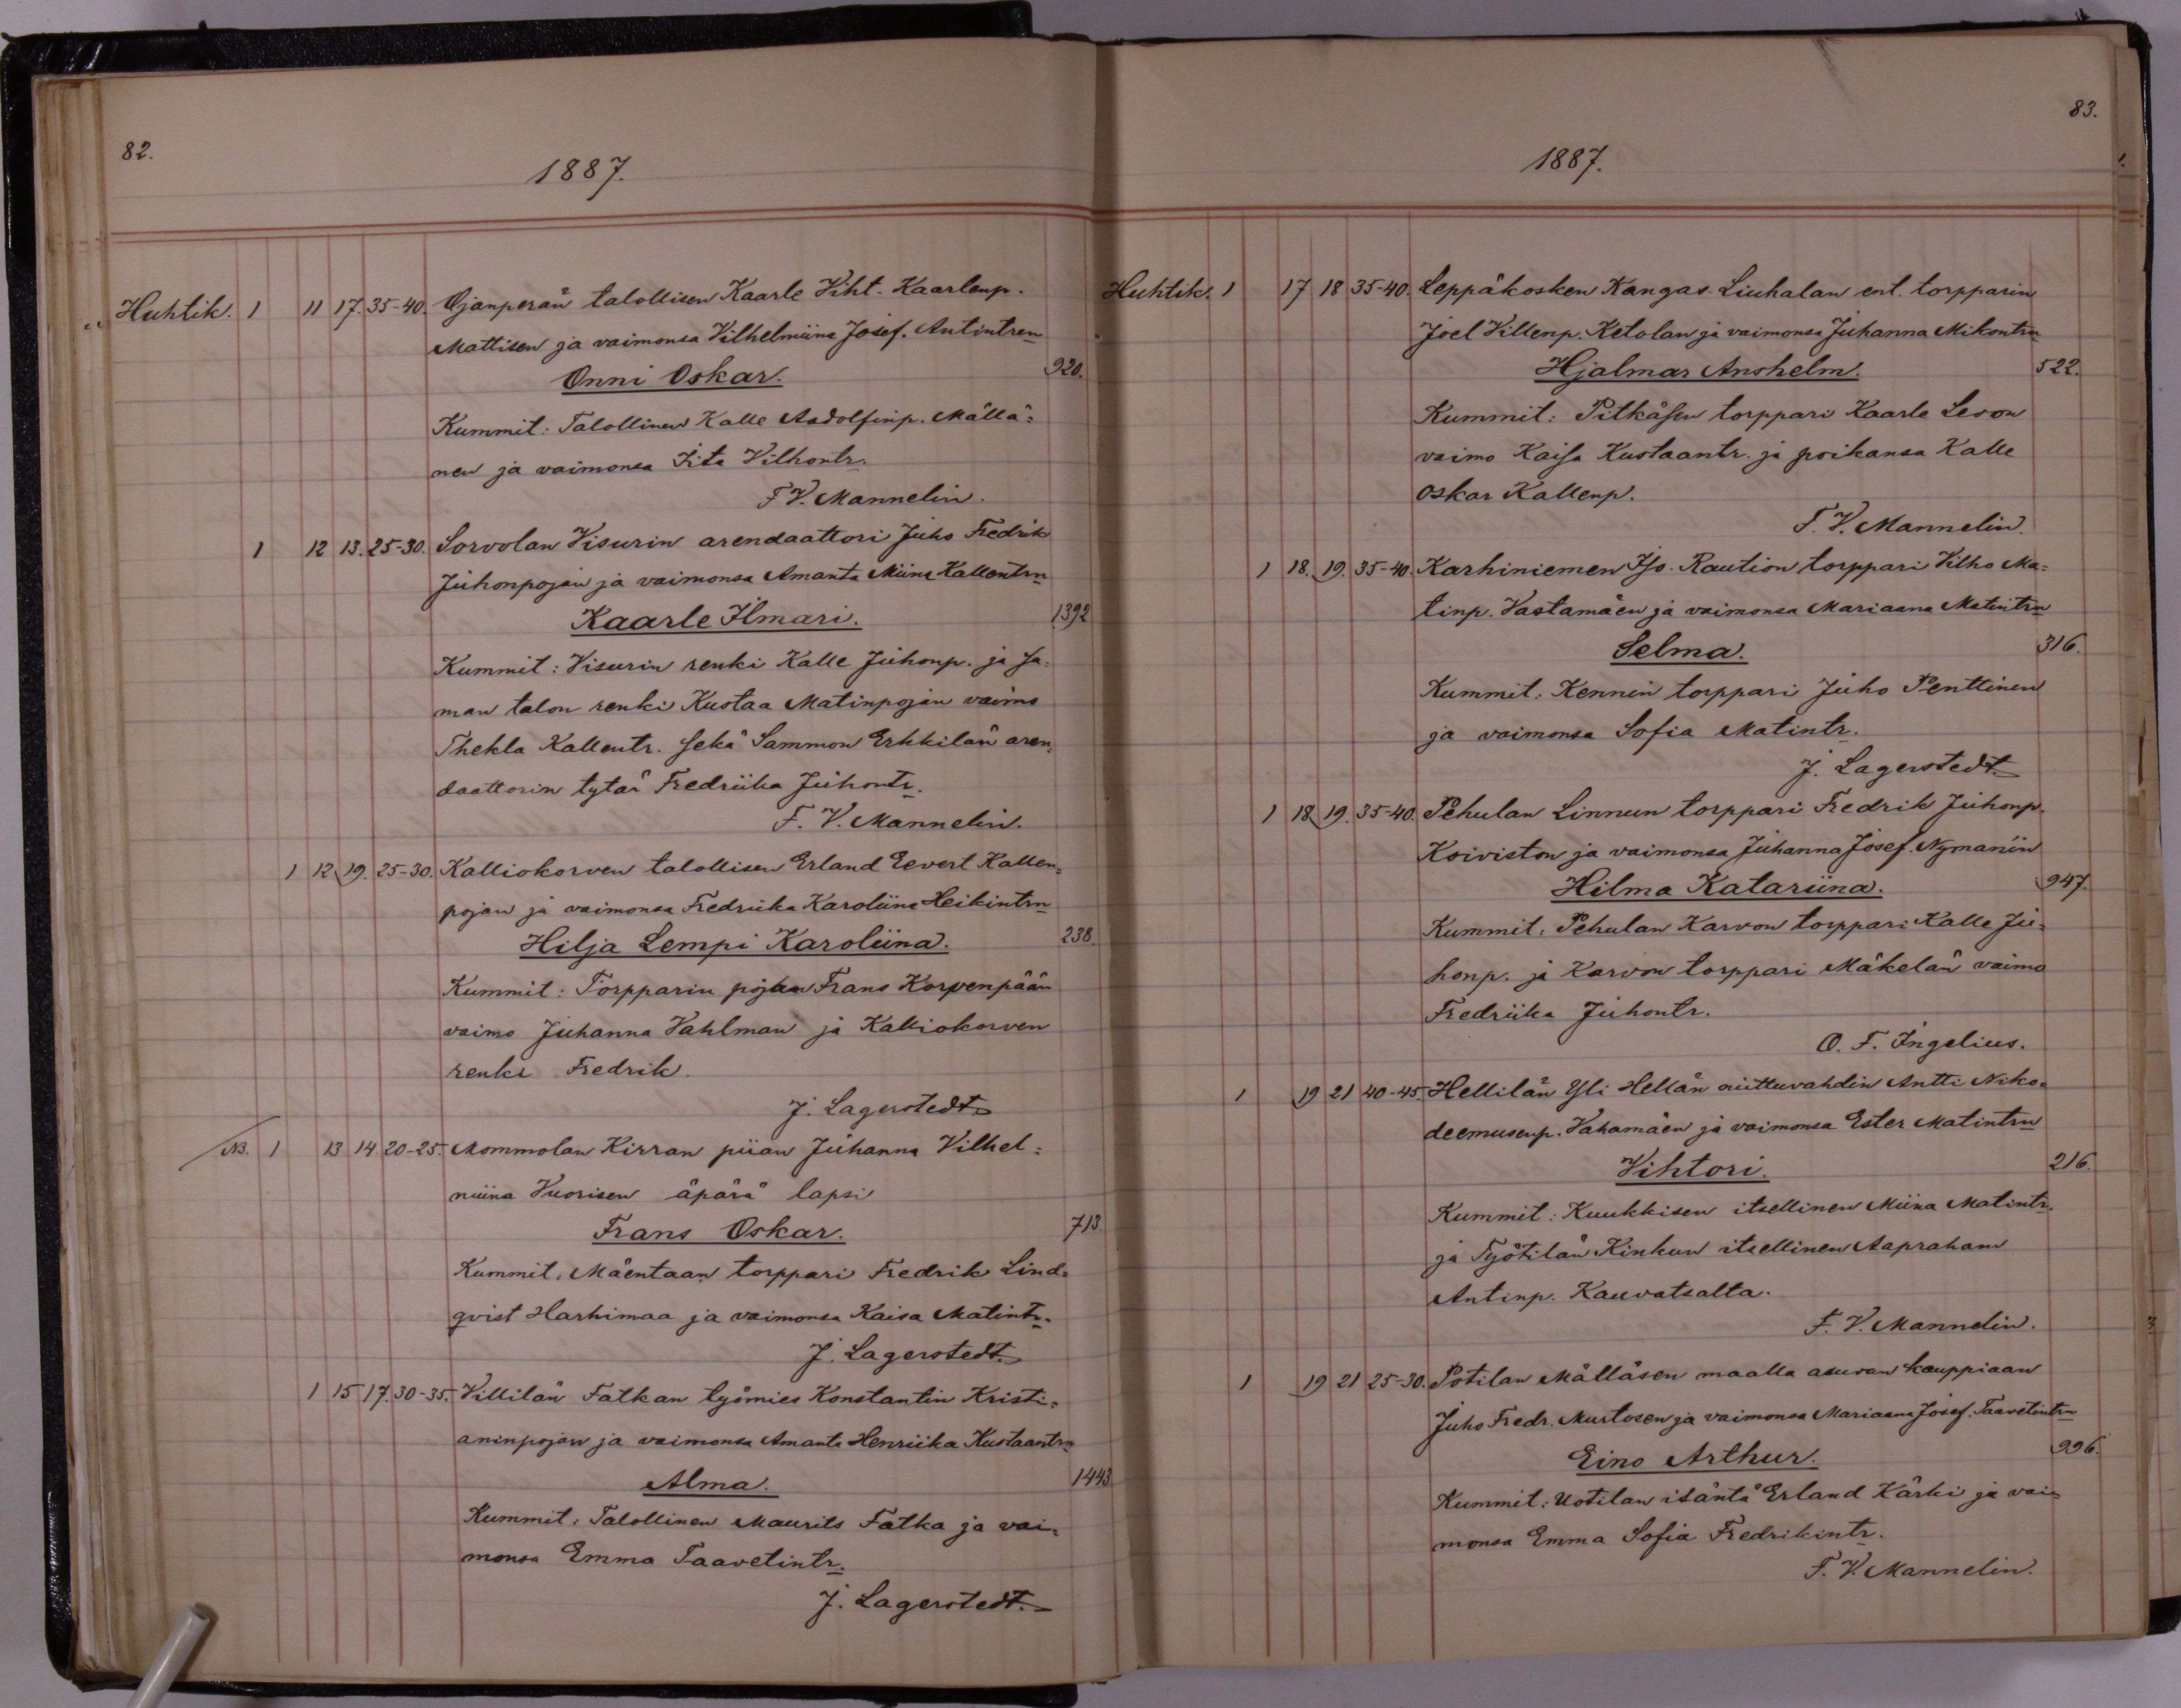 82.
1887.
Huhtik. 1 11 17. 35-40. Ojanperän talollisen Kaarle Viht. Kaarlenp.
Mattisen ja vaimonsa Vilhelmiina Josef. Antintren
Onni Oskar. 920.
Kummit: Talollinen Kalle Aadolfinp. Mällä=
nen ja vaimonsa Iita Vilhontr.
F. V. Mannelin.
1 12 13. 25-30. Sorvolan Visurin arendaattori Juho Fredrik
Juhonpojan ja vaimonsa Amanta Miina Kallentrn
Kaarle Ilmari. 1392
Kummit: Visurin renki Kalle Juhonp. ja sa=
man talon renki Kustaa Matinpojan vaimo
Thekla Kallentr. sekä Sammon Erkkilän aren=
daattorin tytär Fredriika Juhontr.
F. V. Mannelin.
1 12 19. 25-30. Kalliokorven talollisen Erland Eevert Kallen=
pojan ja vaimonsa Fredriika Karoliina Heikintrn
Hilja Lempi Karoliina. 238.
Kummit: Torpparin pojan Frans Korpenpään
vaimo Juhanna Vahlman ja Kalliokorven
renki Fredrik.
J. Lagerstedt.
NB. 1 13 14. 20-25. Mommolan Kirran piian Juhanna Vilhel=
miina Vuorisen äpärä lapsi
Frans Oskar. 713
Kummit: Mäentaan torppari Fredrik Lind=
qvist Harhimaa ja vaimonsa Kaisa Matintr.
J. Lagerstedt.
1 15 17. 30-35. Villilän Fatkan työmies Konstantin Kristi=
aninpojan ja vaimonsa Amanta Henriika Kustaantrn
Alma. 1443
Kummit: Talollinen Maurits Fatka ja vai=
monsa Emma Taavetintr.
J. Lagerstedt.
83.
1887.
Huhtik. 1 17 18 35-40. Leppäkosken Kangas-Liuhalan ent. torpparin
Joel Villenp. Ketolan ja vaimonsa Juhanna Mikontrn
Hjalmar Anshelm. 522.
Kummit: Pitkäsen torppari Kaarle Levon
vaimo Kaisa Kustaantr. ja poikansa Kalle
Oskar Kallenp.
F. V. Mannelin.
1 18. 19. 35-40. Karhiniemen Iso-Raution torppari Vilho Ma=
tinp. Vastamäen ja vaimonsa Mariaana Matintrn
Selma. 316.
Kummit: Kennin torppari Juho Penttinen
ja vaimonsa Sofia Matintr.
J. Lagerstedt.
1 18 19. 35-40. Pehulan Linnun torppari Fredrik Juhonp.
Koiviston ja vaimonsa Juhanna Josef. Nymanin
Hilma Katariina. 947.
Kummit: Pehulan Karvon torppari Kalle Ju=
honp. ja Karvon torppari Mäkelän vaimo
Fredriika Juhontr.
O. F. Ingelius.
1 19 21 40-45. Hellilän Yli Hellän niittuvahdin Antti Niko=
deemusenp. Vahamäen ja vaimonsa Ester Matintrn
Vihtori. 216.
Kummit: Kuukkisen itsellinen Miina Matintr.
ja Työtilän Kinkun itsellinen Aapraham
Antinp. Kauvatsalta.
F. V. Mannelin.
1 19 21 25-30. Potilan Mälläsen maalla asuvan kauppiaan
Juho Fredr. Murtosen ja vaimonsa Mariaana Josef. Taavetintrn
Eino Arthur. 996.
Kummit: Uotilan isäntä Erland Kärki ja vai=
monsa Emma Sofia Fredrikintr.
F. V. Mannelin.